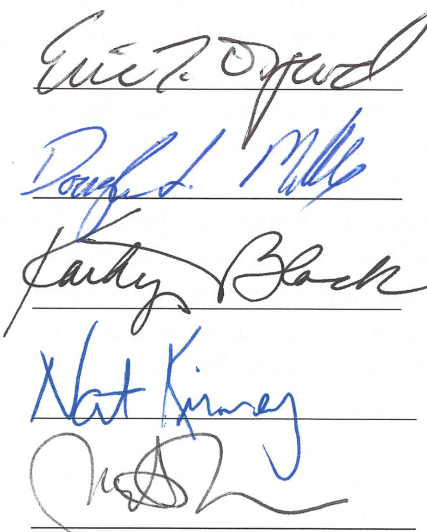 Eric T.
Douglas L. Mills
Kathy Black
Nat Kinney